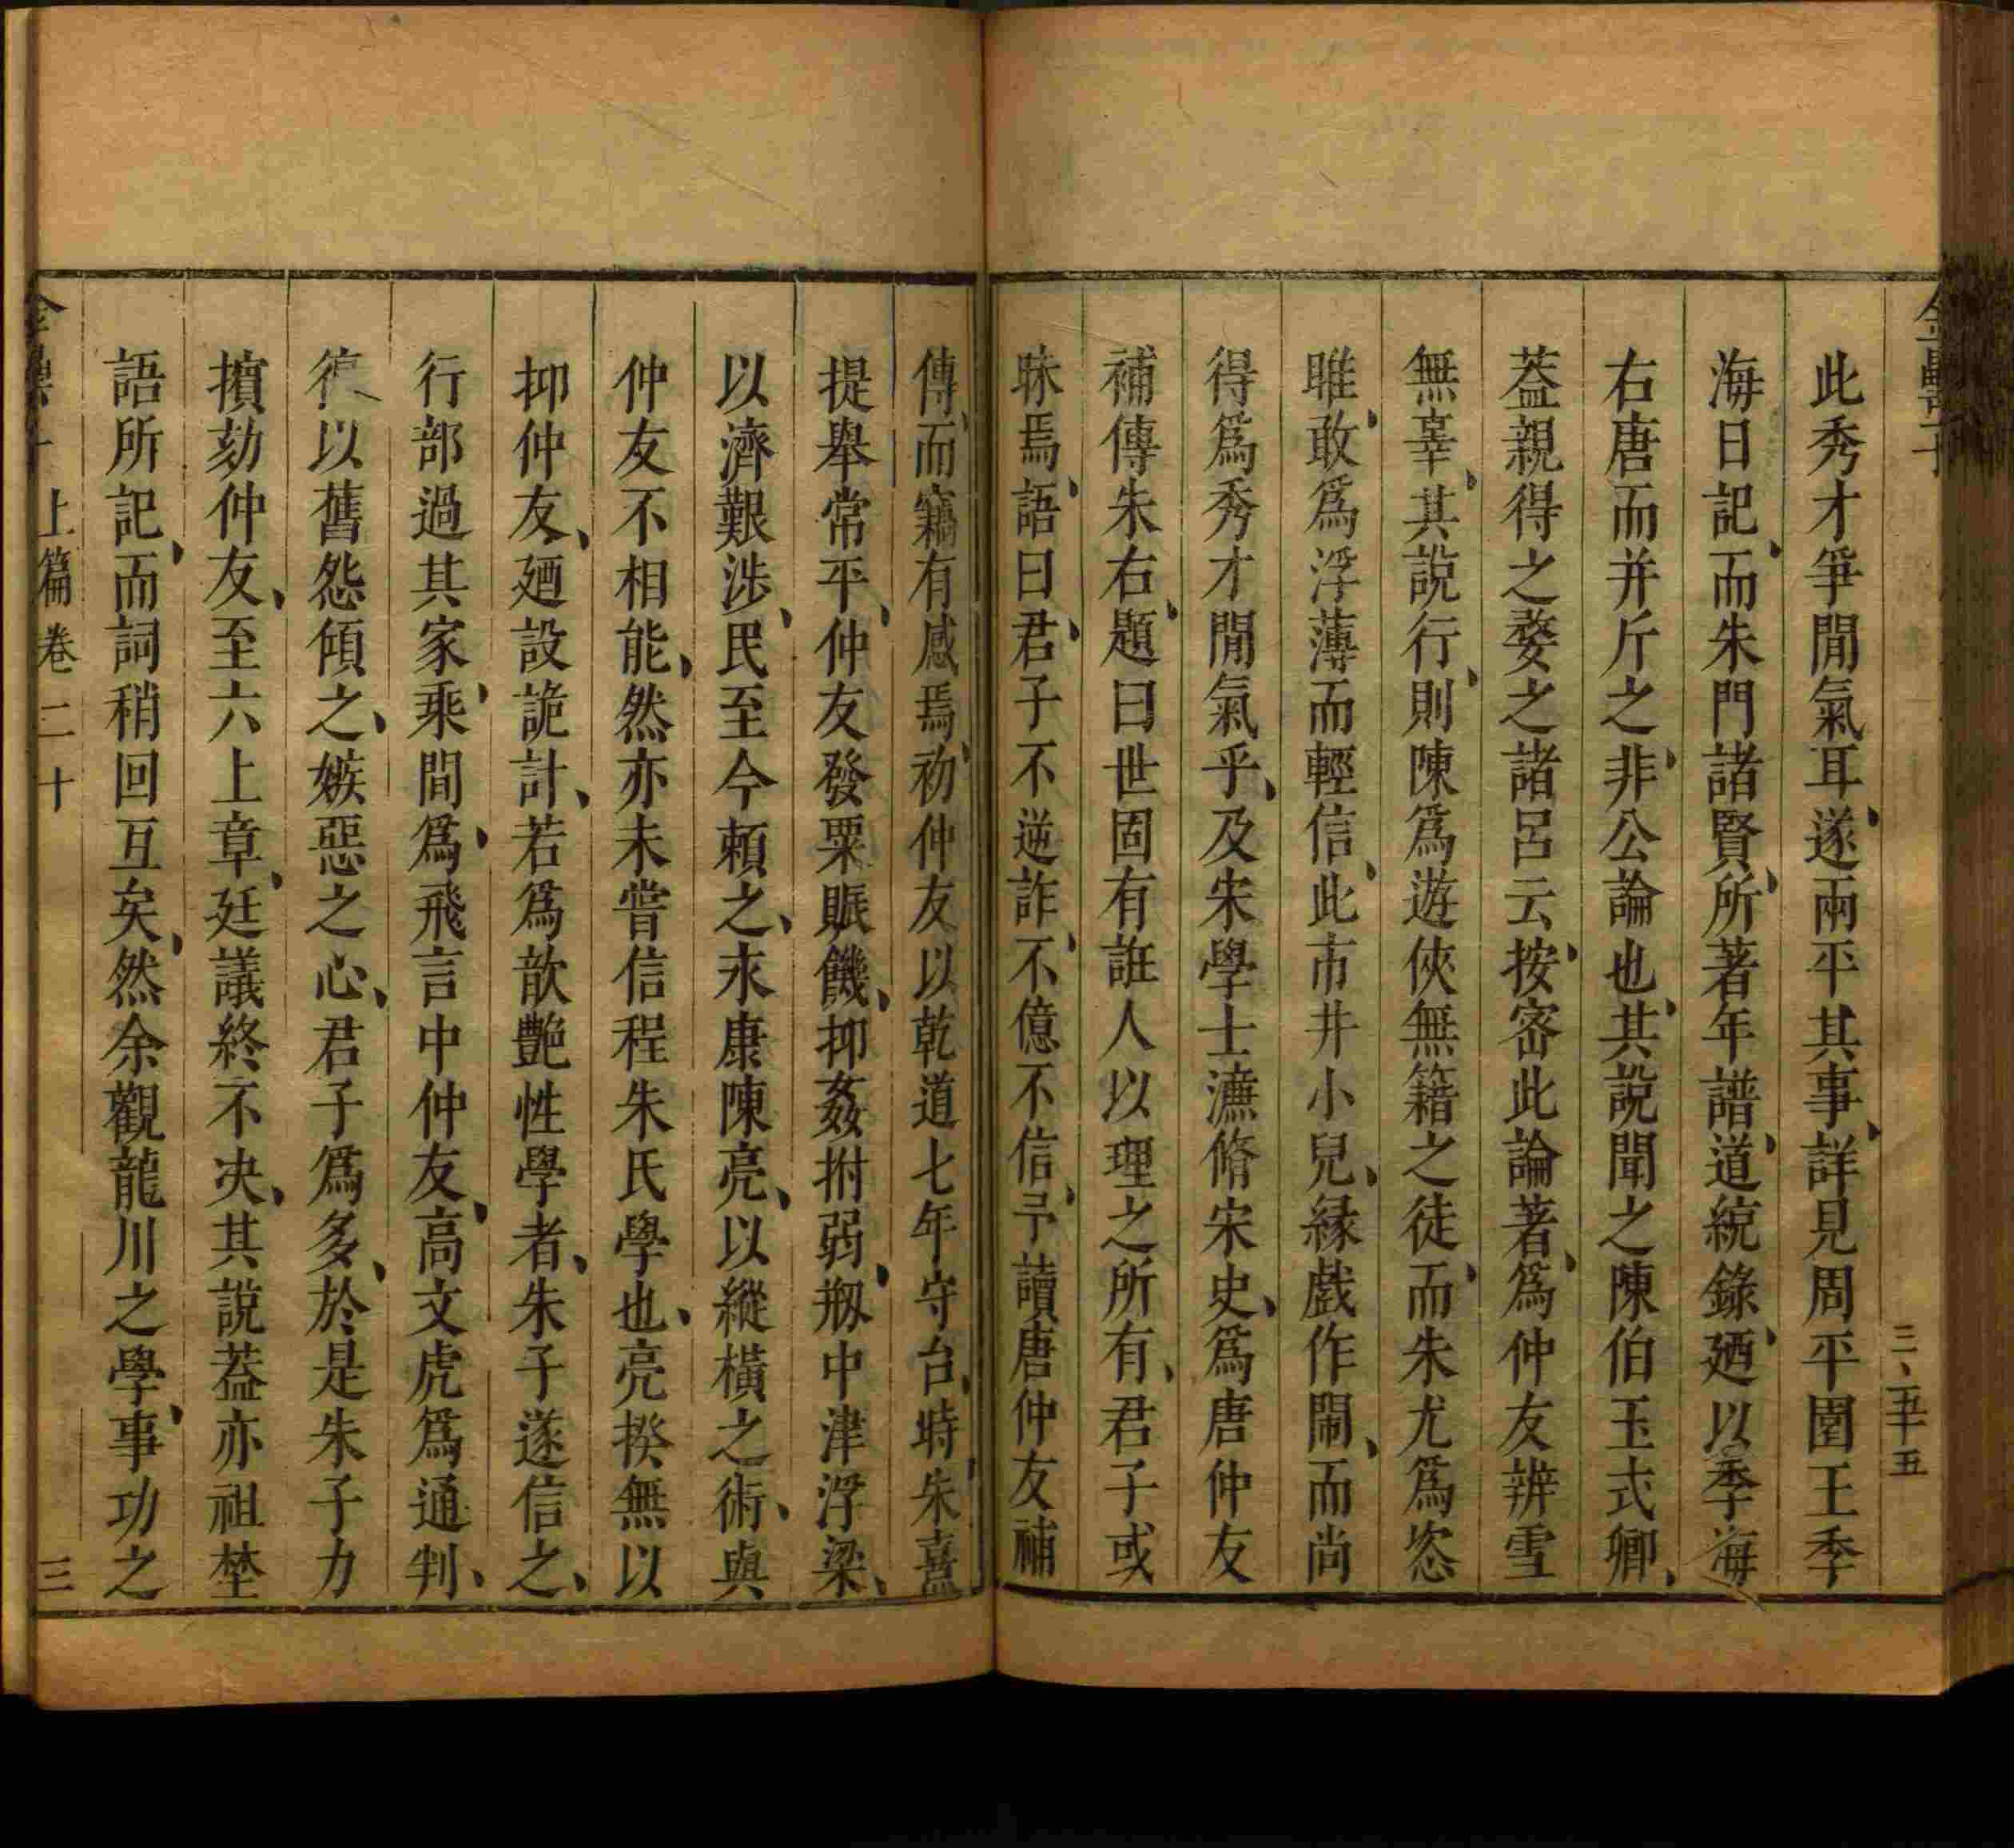 此秀才爭閒氣耳遂兩平其事詳見周平園王季
海日記而朱門諸賢所著年譜道統錄廼以季海
右唐而并斤之非公論也其說聞之陳伯玉式卿
葢親得之婺之諸呂云按宻此論著為仲友辨雪
無辜其說行則陳為遊俠無籍之徒而朱尤為恣
睢敢為浮薄而輕信此市井小兒縁戲作鬧而尚
得為秀才閒氣乎及宋學士濂脩宋史為唐仲友
補傳朱右題曰世固有誑人以理之所有君子或
昧焉語曰君子不逆詐不億不信予讀唐仲友補
傳而竊有感焉初仲友以乾道七年守台時朱熹
提舉常平仲友發粟賑饑抑姦拊弱剏中津浮梁
以濟艱涉民至今頼之永康陳亮以縱橫之術與
仲友不相能然亦未甞信程朱氏學也亮揆無以
抑仲友廼設詭計若為歆艷性學者朱子遂信之
行部過其家乘間為飛言中仲友高文虎為通判
復以舊怨傾之嫉惡之心君子為多於是朱子力
擯劾仲友至六上章廷議終不决其說葢亦祖埜
語所記而詞稍回互矣然余觀龍川之學事功之
上篇卷二十
三